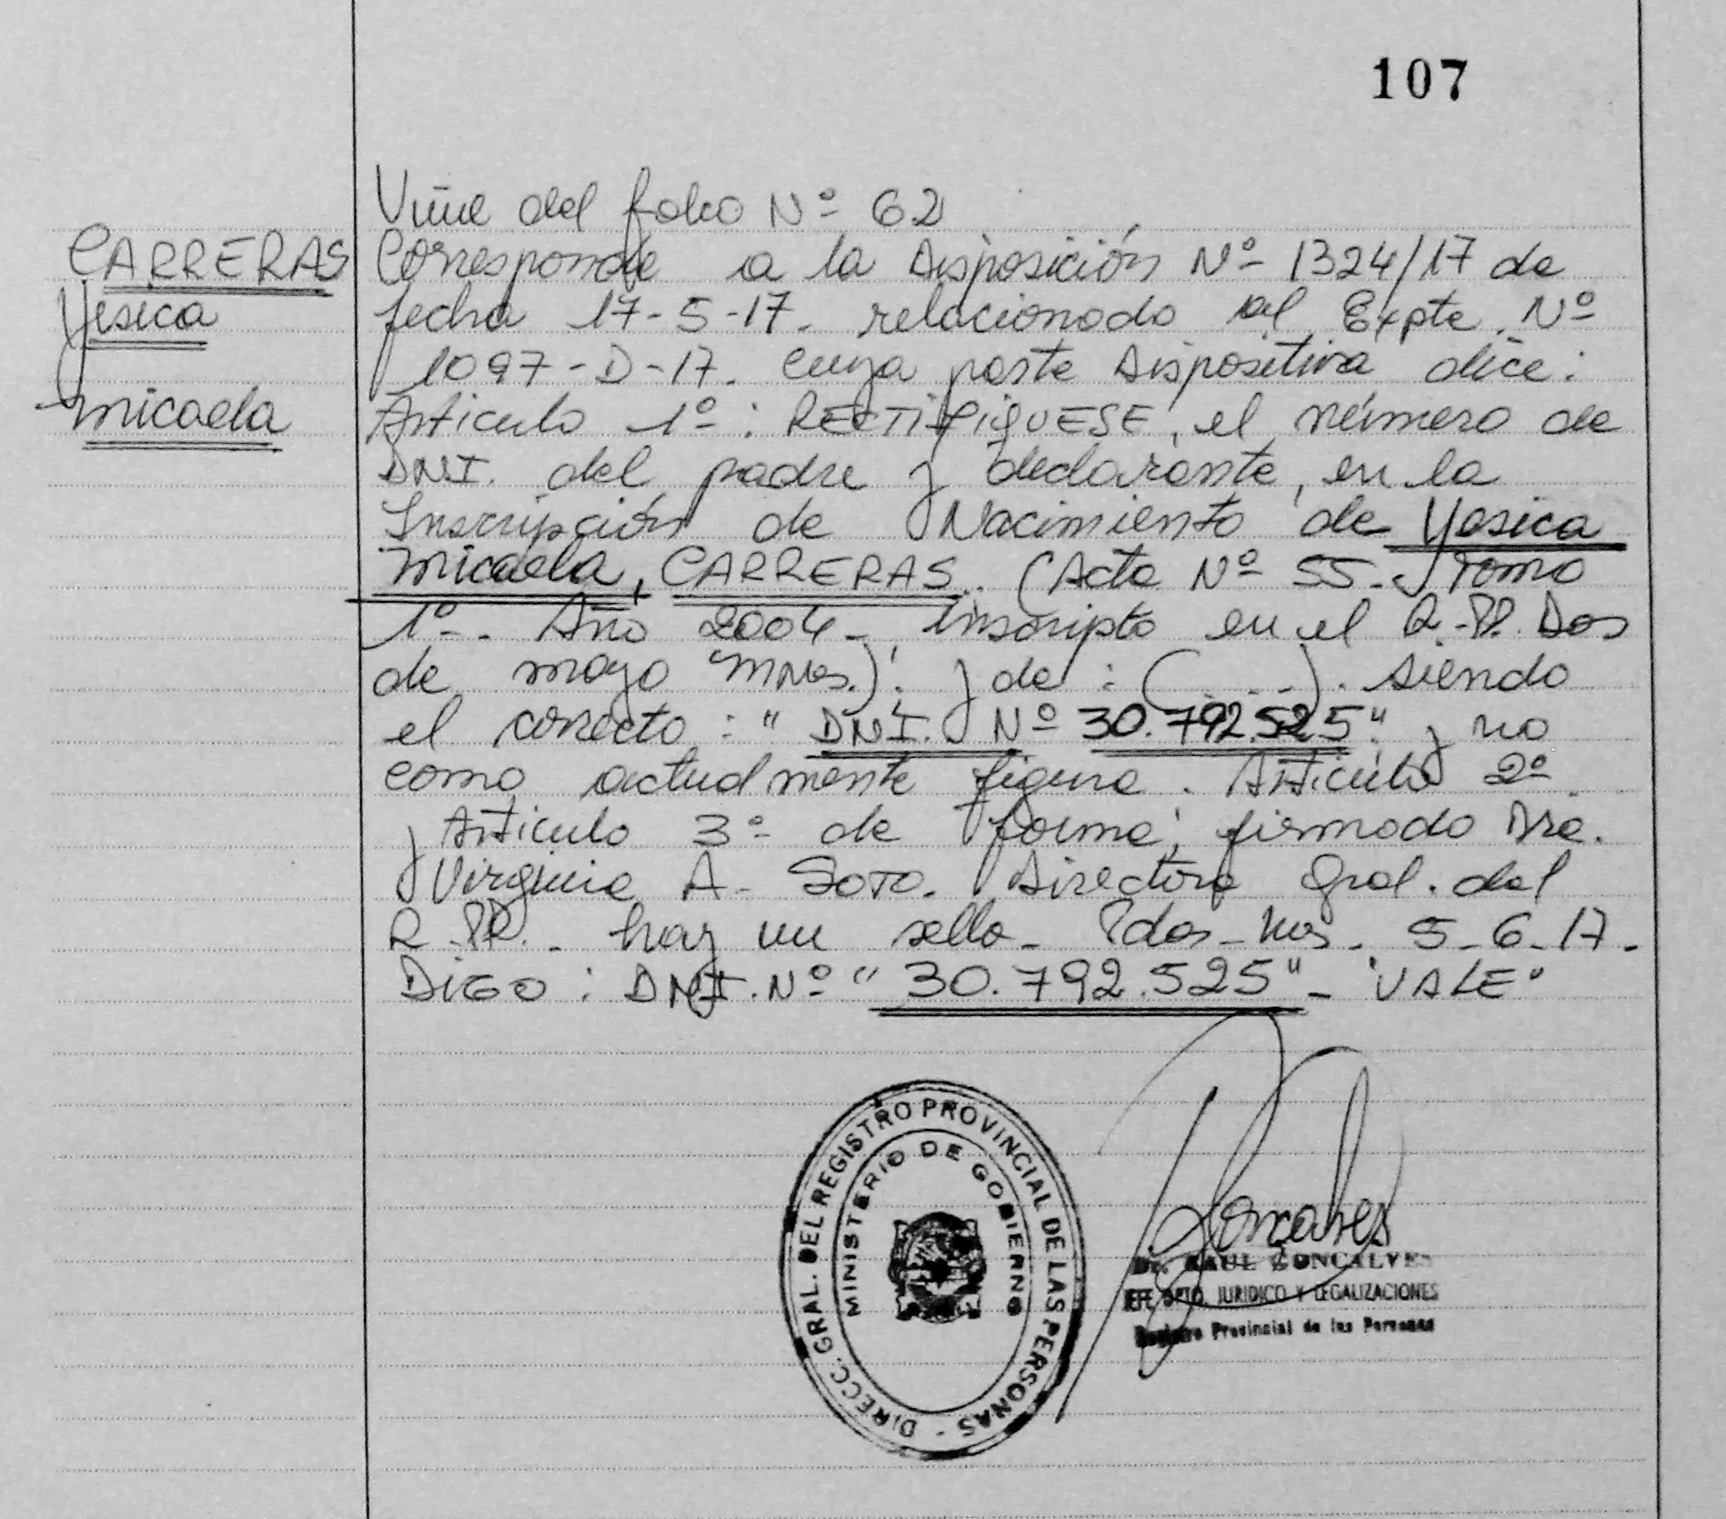 107
CARRERAS
Yesica
Micaela
Viene del folio Nº 62
Corresponde a la Disposición Nº 1324/17 de
fecha 17-5-17. relacionado al Expte. Nº
1097-D-17. cuya parte Dispositiva dice:
Articulo 1º: RECTIFIQUESE, el número de
DNI. del padre y declarante, en la
Inscripción de Nacimiento de Yesica
Micaela, CARRERAS. (Acta Nº 55. Tomo
1º-. Año 2004-, inscripta en el R.PP. Dos
de mayo Mnes.). y de: (.....). siendo
el correcto: "DNI. Nº 30.792.525" y no
como actualmente figura. Articulo 2º
y Articulo 3º de forma; firmado Dra.
Virginia A. Soto. Directora Gral. del
R.PP. hay un sello. Pdas-Mns. 5-6-17.
DIGO: DNI. Nº "30.792.525"- "VALE"
DIRECC. GRAL. DEL REGISTRO PROVINCIAL DE LAS PERSONAS -
MINISTERIO DE GOBIERNO
Goncalves
Dr. RAUL GONCALVES
JEFE DPTO. JURIDICO Y LEGALIZACIONES
Registro Provincial de las Personas